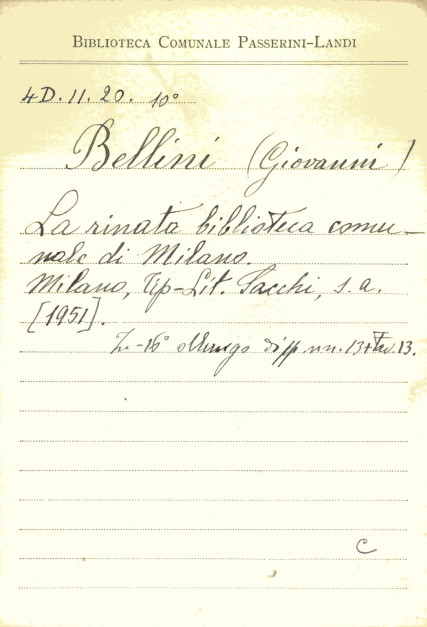 BIBLIOTECA COMUNALE PASSERINI-LANDI
4D. 11. 20. 10°
Bellini (Giovanni)
La rinata biblioteca comu-
nale di Milano.
Milano, Tip-Lit. Sacchi, s. a.
[1951].
16° oblungo di pp nn. 13+Tav. 13.
C